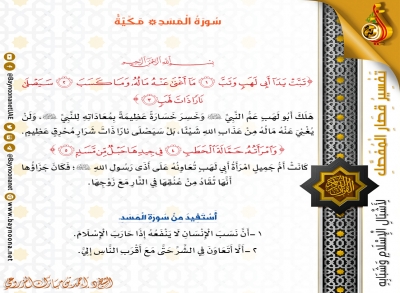 سُورَةُ المَسَدِ مَكِيَّةٌ
بِسْمِ اللَّهِ الرَّحْمَٰنِ الرَّحِيمِ
﴿تَبَّتْ يَدَا أَبِي لَهَبٍ وَتَبَّ ۝١ مَا أَغْنَىٰ عَنْهُ مَالُهُ وَمَا كَسَبَ ۝٢ سَيَصْلَىٰ
نَارًا ذَاتَ لَهَبٍ ۝٣﴾
هَلَكَ أَبُو لَهَبٍ عَمُّ النَّبِيِّ ﷺ وَخَسِرَ خَسَارَةً عَظِيمَةً بِمُعَادَاتِهِ لِلنَّبِيِّ ﷺ، وَلَنْ
يُغْنِيَ عَنْهُ مَالُهُ مِنْ عَذَابِ اللهِ شَيْئًا، بَلْ سَيَصْلَى نَارًا ذَاتَ شَرَارٍ مُحْرِقٍ عَظِيمٍ.
﴿وَامْرَأَتُهُ حَمَّالَةَ الْحَطَبِ ۝٤ فِي جِيدِهَا حَبْلٌ مِّن مَّسَدٍ ۝٥﴾
كَانَتْ أُمُّ جَمِيلٍ امْرَأَةُ أَبِي لَهَبٍ تُعَاوِنُهُ عَلَى أَذَى رَسُولِ اللهِ ﷺ؛ فَكَانَ جَزَاؤُهَا
أَنَّهَا تُقَادُ مِنْ عُنُقِهَا فِي النَّارِ مَعَ زَوْجِهَا.
أَسْتَفِيدُ مِنْ سُورَةِ المَسَدِ
١- أَنَّ نَسَبَ الإِنْسَانِ لَا يَنْفَعُهُ إِذَا حَارَبَ الإِسْلَامَ.
٢- أَلَّا أَتَعَاوَنَ فِي الشَّرِّ حَتَّى مَعَ أَقْرَبِ النَّاسِ إِلَيَّ.
تَفْسِيرُ قِصَارِ المُفَصَّلِ
لِأَشْبَالِ الإِسْلَامِ وَشَبَابِهِ
@Baynoonanet
@BaynoonanetUAE
www.baynoona.net